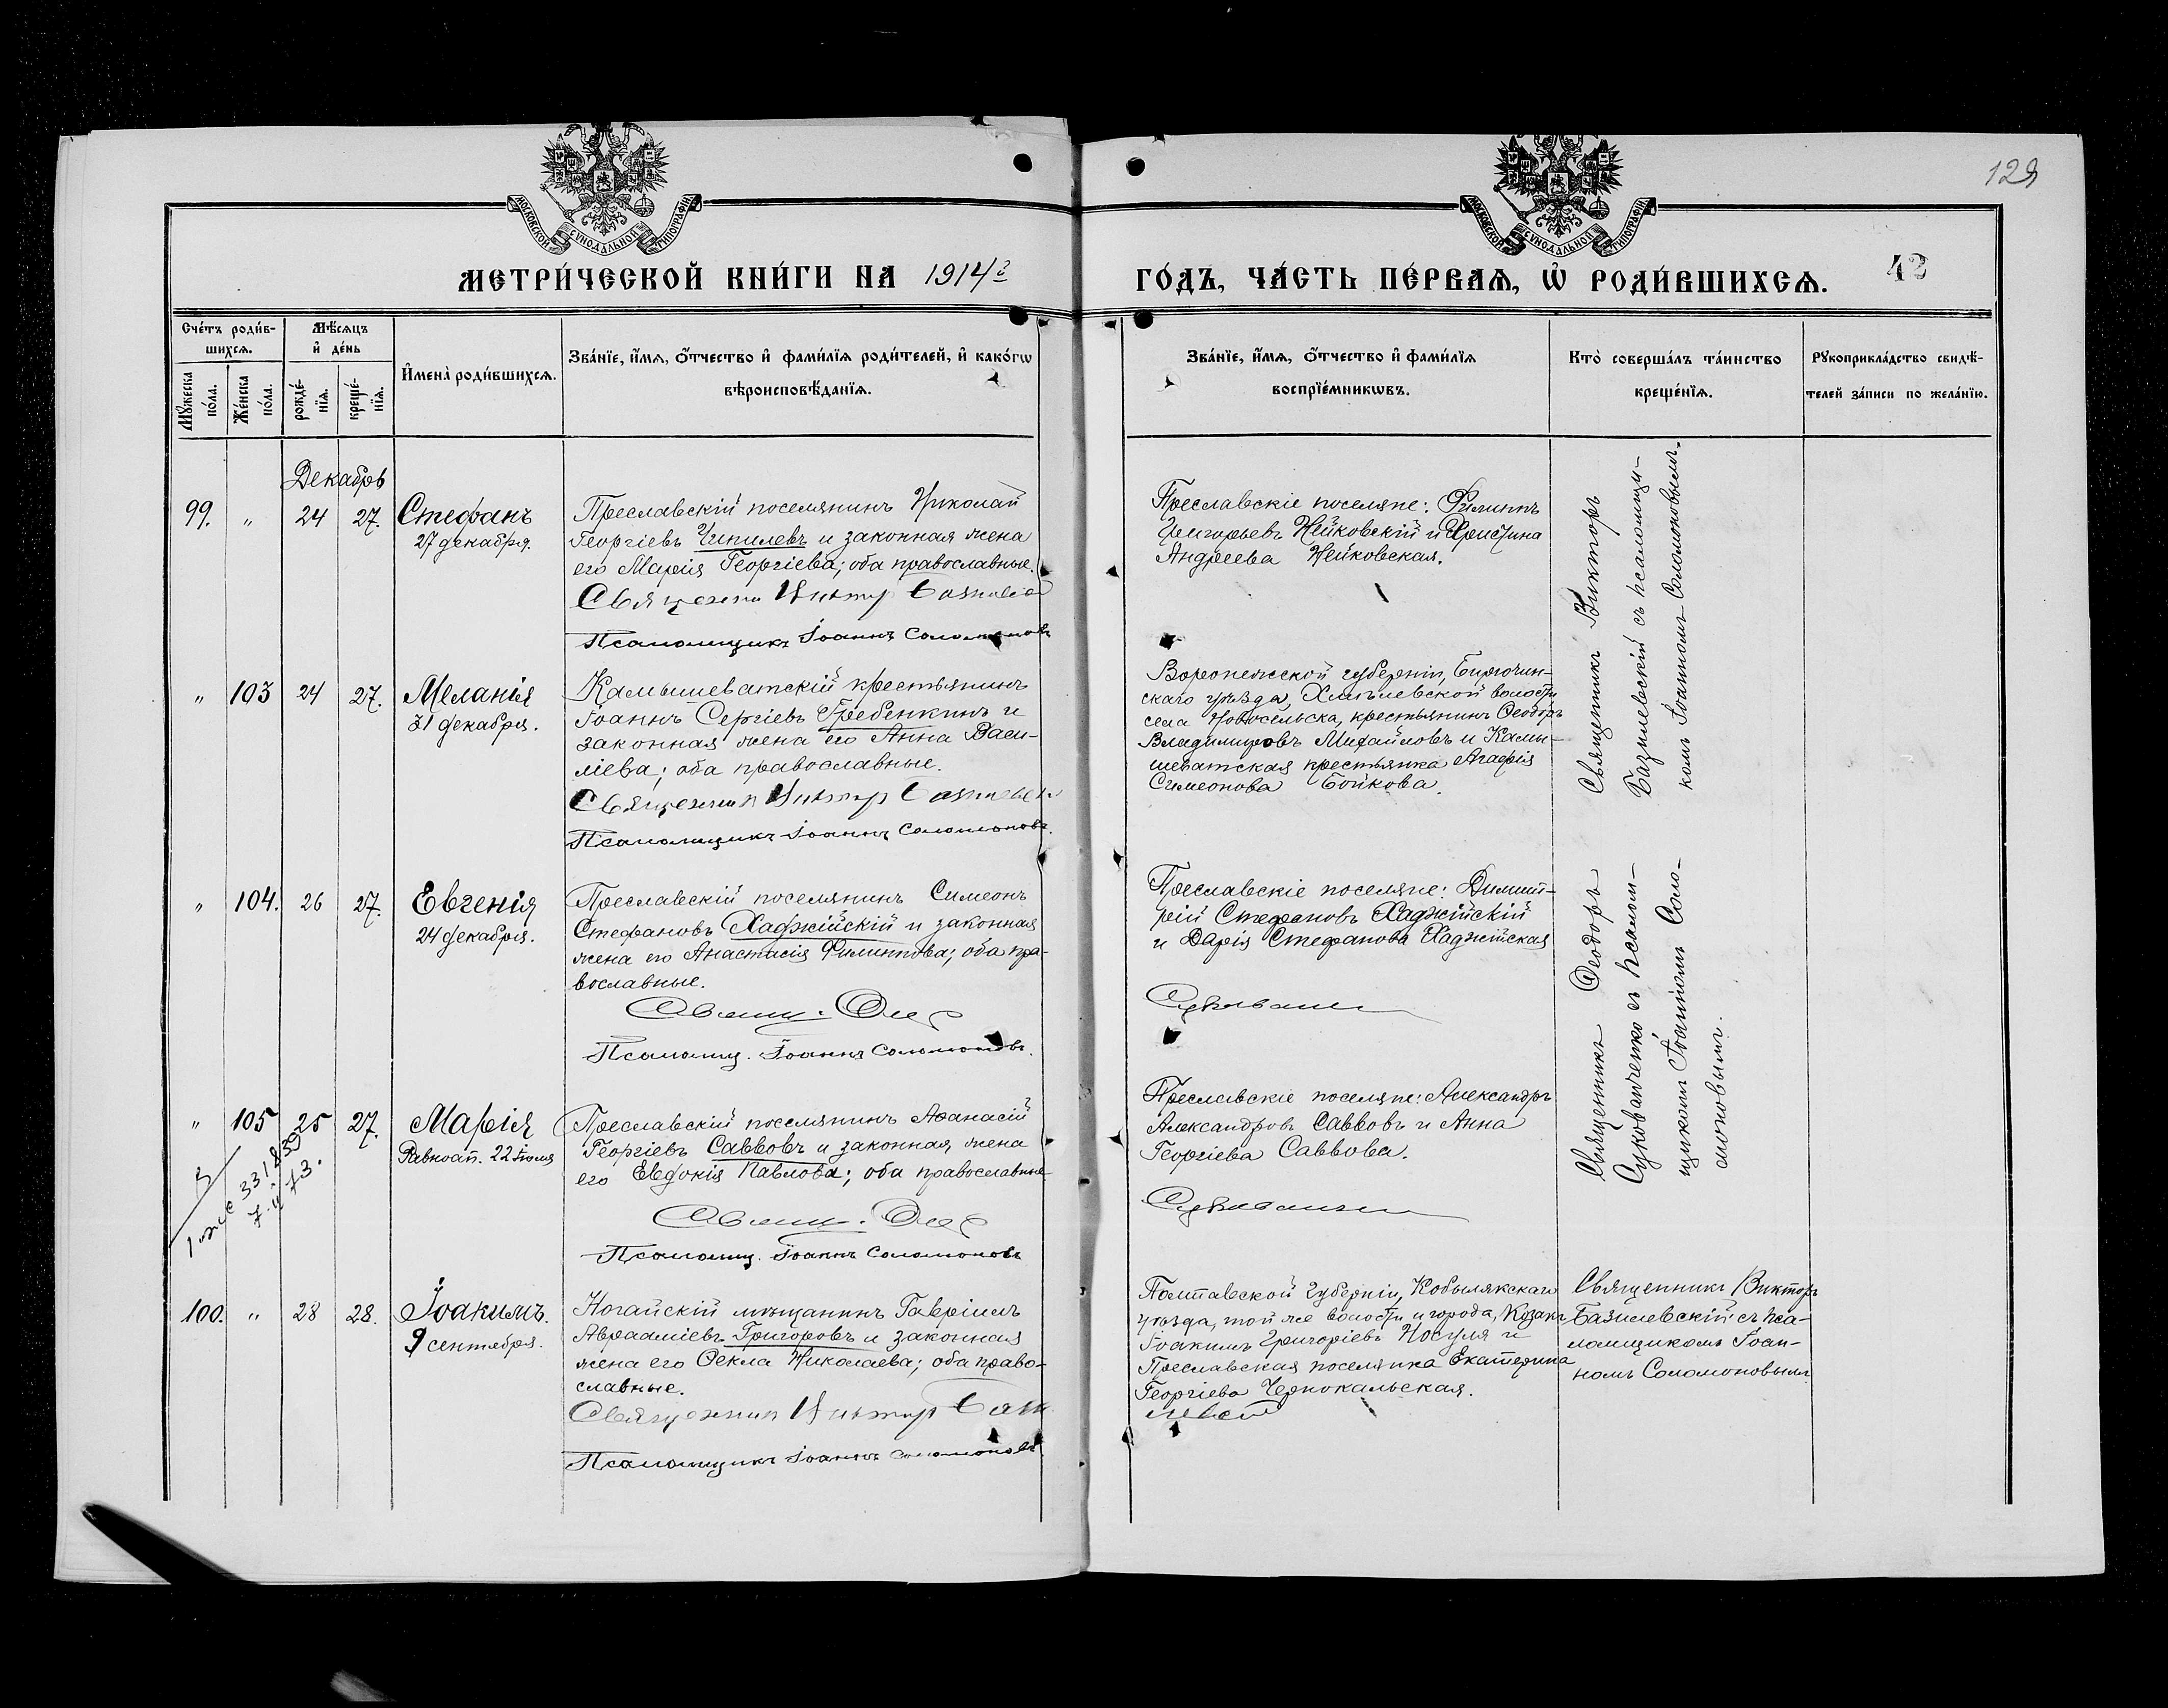 129
МОСКОВСКОЙ СѴНОДАЛЬНОЙ ТИПОГРАФІИ
МОСКОВСКОЙ СѴНОДАЛЬНОЙ ТИПОГРАФІИ
МЕТРИ́ЧЕСКОЙ КНИ́ГИ НА 1914 г
ГО́ДЪ, ЧА́СТЬ ПЕ́РВАѦ, Ѽ РОДИ́ВШИХСѦ.
43
Сче́тъ роди́в-
шихсѧ.
Мѣ́сѧцъ
и҆ де́нь
И҆мена̀ роди́вшихсѧ.
Зва́нїе, и҆́мѧ, ѻ҆́тчество и҆ фами́лїѧ роди́телей, и҆ како́гѡ
вѣроисповѣ́данїѧ.
Мꙋ́жеска
по́ла.
Же́нска
по́ла.
рожде́-
нїѧ.
креще́-
нїѧ.
Зва́нїе, и҆́мѧ, ѻ҆́тчество и҆ фами́лїѧ
воспрїе́мникѡвъ.
Кто̀ соверша́лъ та́инство
креще́нїѧ.
Рꙋкоприкла́дство свидѣ́-
телей за́писи по жела́нїю.
Декабрь
99. „ 24 27. Стефанъ
27 декабря.
Преславскій поселянинъ Николай
Георгіевъ Чипилевъ и законная жена
его Марія Георгіева; оба православные.
Священникъ Викторъ Базилевскій
Псаломщикъ Іоаннъ Соломоновъ
Преславскіе поселяне: Филиппъ
Григорьевъ Нейковскій и Христина
Андреева Нейковская.
Священникъ Викторъ
Базилевскій съ псаломщи-
комъ Іоанномъ Соломоновымъ.
„ 103 24 27. Меланія
31 декабря.
Камышеватскій крестьянинъ
Іоаннъ Сергіевъ Гребенкинъ и
законная жена его Анна Васи-
ліева; оба православные.
Священникъ Викторъ Базилевскій
Псаломщикъ Іоаннъ Соломоновъ.
Воронежской губерніи, Бирючин-
скаго уѣзда, Хмѣлевской волости
села Новосельска, крестьянинъ Ѳеодоръ
Владимировъ Михайловъ и Камы-
шеватская крестьянка Агафія
Симеонова Бойкова.
„ 104. 26 27. Евгенія
24 декабря.
Преславскій поселянинъ Симеонъ
Стефановъ Хаджійскій и законная
жена его Анастасія Филиппова; оба пра-
вославные.
Свящ. Ѳео
Псаломщ. Іоаннъ Соломоновъ.
Преславскіе поселяне: Димит-
рій Стефановъ Хаджійскій
и Дарія Стефанова Хаджійская
Священникъ Ѳеодоръ
Сукованченко съ псалом-
щикомъ Іоанномъ Соло-
моновымъ.
„ 105 25 27. Марія
Равноап. 22 Іюля
Преславскій поселянинъ Аѳанасій
Георгіевъ Савовъ и законная жена
его Евдокія Павлова; оба православные
Свящ. Ѳео
Псаломщ. Іоаннъ Соломоновъ
Преславскіе поселяне: Александръ
Александровъ Саввовъ и Анна
Георгіева Саввова.
100. „ 28 28. Іоакимъ.
9 сентября.
Ногайскій мѣщанинъ Гавріилъ
Авраамiевъ Григоровъ и законная
жена его Ѳекла Николаева; оба право-
славные.
Священникъ Викторъ Бази
Псаломщикъ Іоаннъ Соломоновъ
Полтавской губерніи, Кобылякскаго
уѣзда, той же волости и города, Козакъ
Іоакимъ Григоріевъ Носуля и
Преславская поселянка Екатерина
Георгіева Чернокальская.
левскій
Священникъ Викторъ
Базилевскій съ пса-
ломщикомъ Іоан-
номъ Соломоновымъ